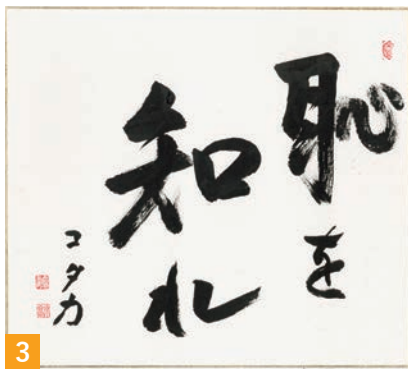 恥を
知れ
コタカ
3